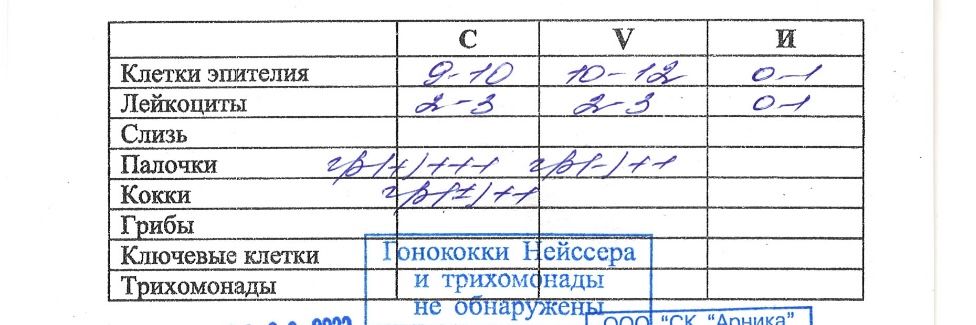 С V И
Клетки эпителия 9-10 10-12 0-1
Лейкоциты 2-3 2-3 0-1
Слизь
Палочки гр(+)+++ гр(-)++
Кокки гр(±)++
Грибы
Ключевые клетки
Трихомонады
Гонококки Нейссера
и трихомонады
не обнаружены
2022
ООО "СК "Арника"